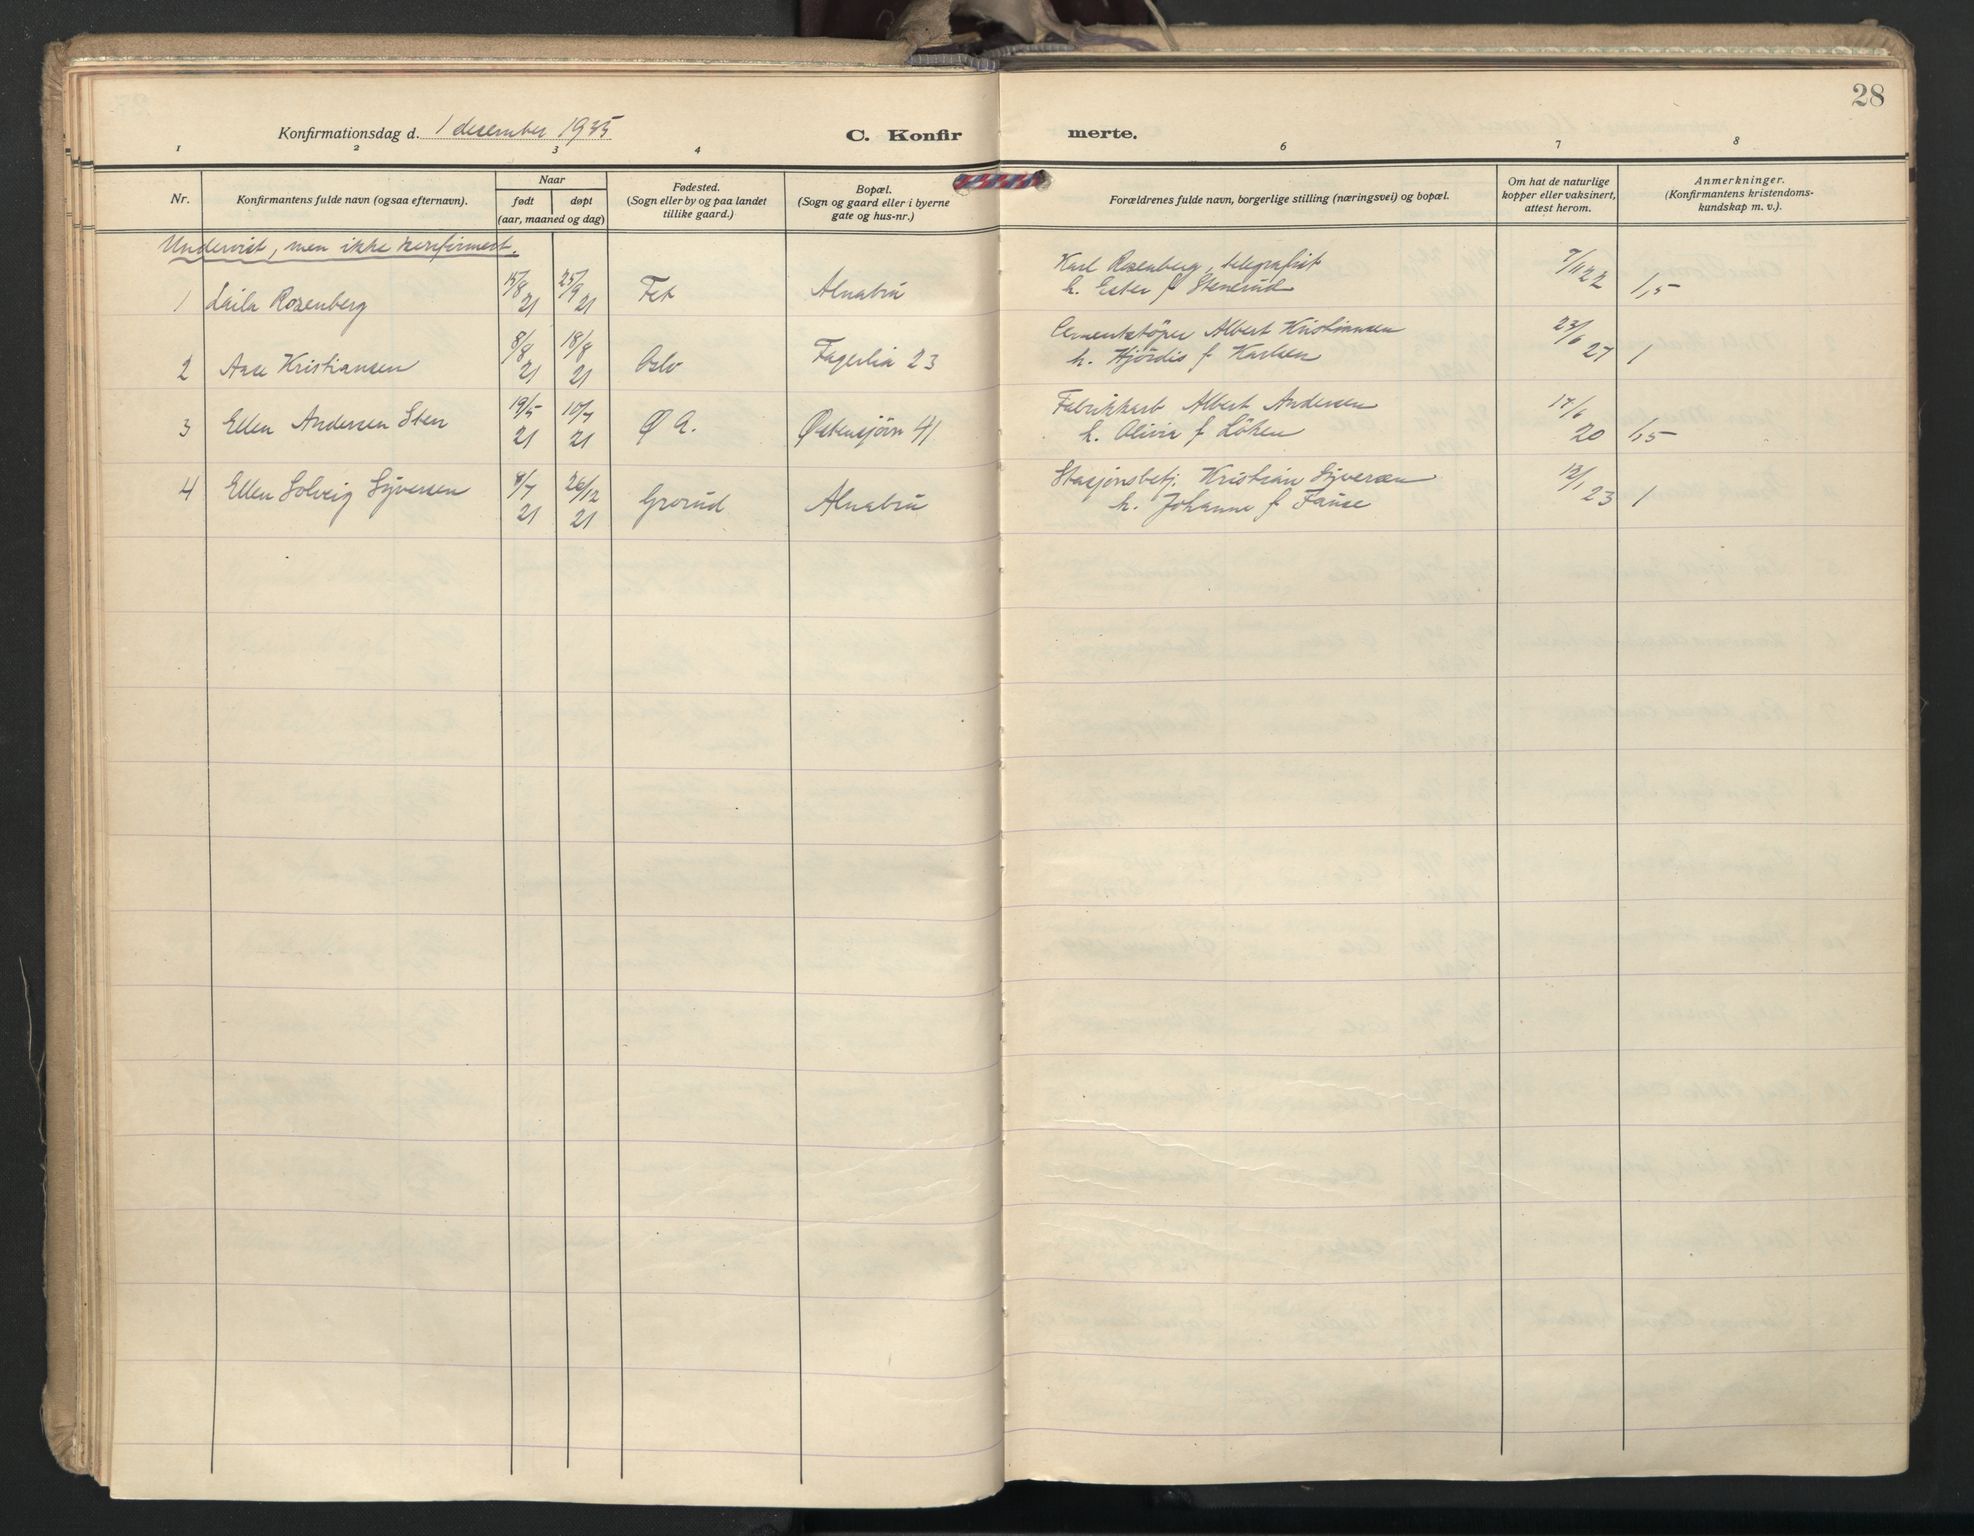 28
Konfirmationsdag d. 1 desember 1935
C. Konfirmerte.
1 2 3 4 6 7 8
Nr.
Konfirmantens fulde navn (ogsaa efternavn).
Naar
født
døpt
(aar, maaned og dag)
Fødested.
(Sogn eller by og paa landet
tillike gaard.)
Bopæl.
(Sogn og gaard eller i byerne
gate og hus-nr.)
Forældrenes fulde navn, borgerlige stilling (næringsvei) og bopæl.
Om hat de naturlige
kopper eller vaksinert,
attest herom.
Anmerkninger.
(Konfirmantens kristendoms-
kundskap m. v.).
Undervist, men ikke konfirmert.
1 Laila Rosenberg 15/8 21 25/9 21 Fet Alnabru
Karl Rosenberg, telegrafist
h. Ester f Stenerud 7/11 22 1,5
2 Aase Kristiansen 8/8 21 18/8 21 Oslo Fagerlia 23
Cementstöper Albert Kristiansen
h. Hjördis f. Karlsen 23/6 27 1
3 Ellen Andersen Sten 19/5 21 10/7 21 Ø A. Østensjövn 41
Fabrikkarb Albert Andersen
h. Olivia f. Löken 17/6 20 1,5
4 Ellen Solveig Syversen 9/7 21 26/12 21 Grorud Alnabru
Stasjonsbetj. Kristian Syversen
h. Johanne f. 12/1 23 1